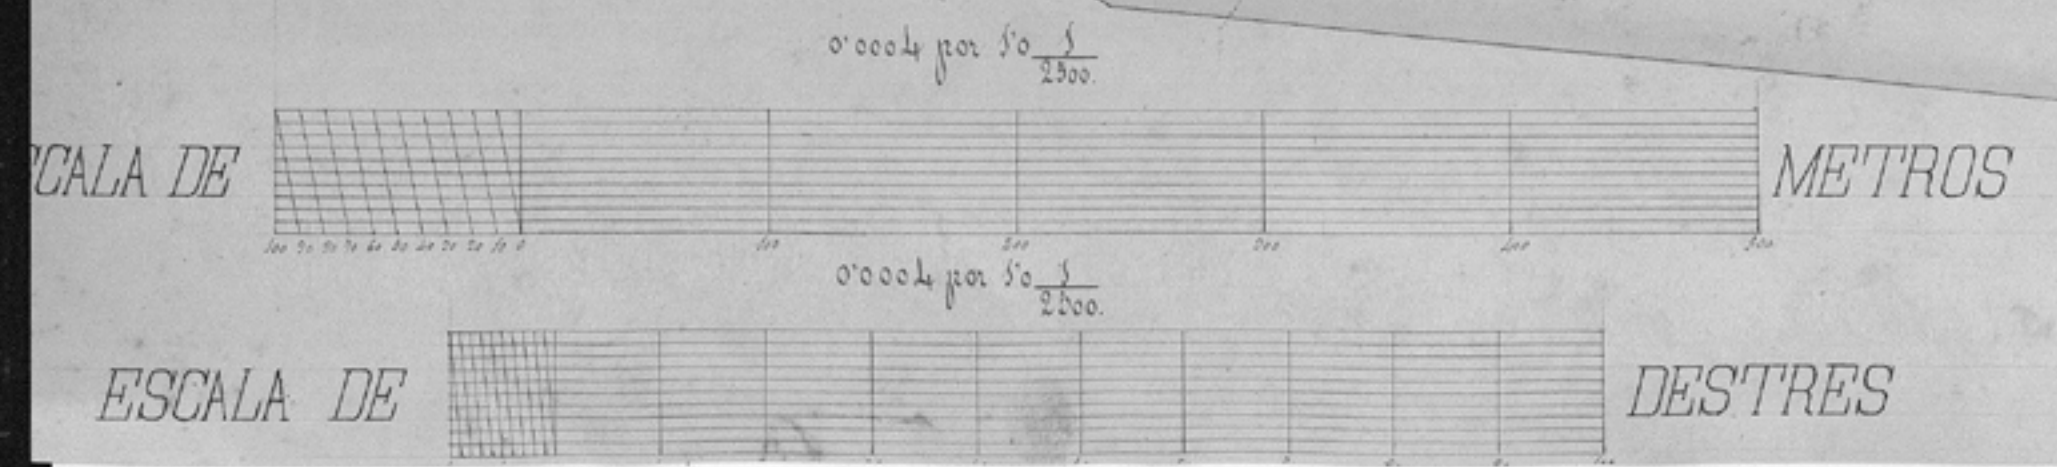 0'0004 por 1'0 1/2500.
SCALA DE METROS
100 90 80 70 60 50 40 30 20 10 0 100 200 300 400 500
0'0004 por 1'0 1/2500.
ESCALA DE DESTRES